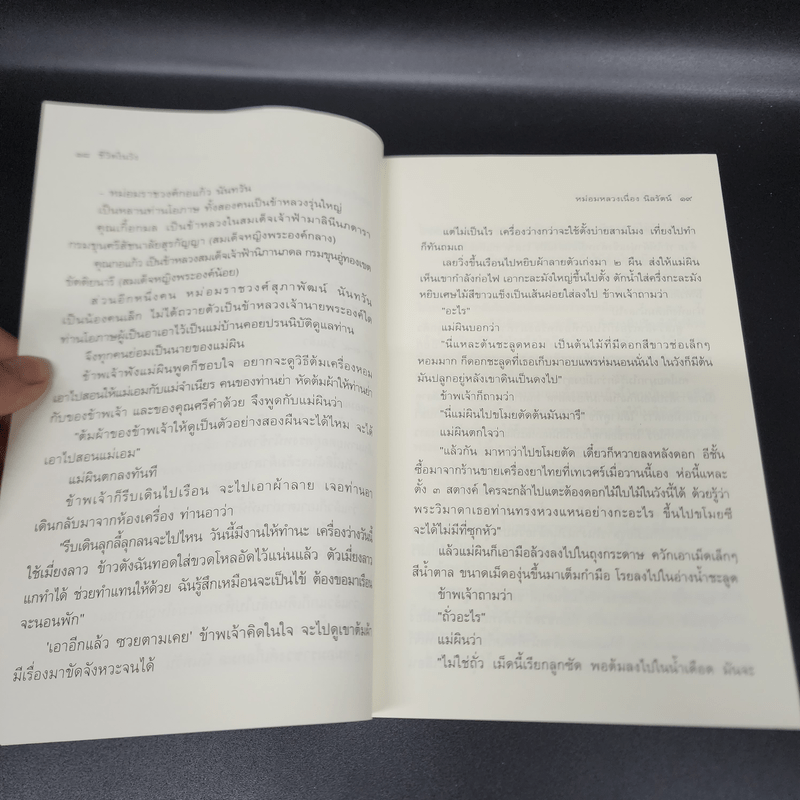 ๑๘ ชีวิตในวัง
- หม่อมราชวงศ์กอแก้ว นันทวัน
เป็นหลานท่านโอภาษ ทั้งสองคนเป็นข้าหลวงรุ่นใหญ่
คุณเกื้อกมล เป็นข้าหลวงในสมเด็จเจ้าฟ้ามาลินีนภดารา
กรมขุนศรีสัชนาลัยสุรกัญญา (สมเด็จหญิงพระองค์กลาง)
คุณกอแก้ว เป็นข้าหลวงสมเด็จเจ้าฟ้านิภานภดล กรมขุนอู่ทองเขต
ขัตติยนารี (สมเด็จหญิงพระองค์น้อย)
ส่วนอีกหนึ่งคน หม่อมราชวงศ์สุภาพัฒน์ นันทวัน
เป็นน้องคนเล็ก ไม่ได้ถวายตัวเป็นข้าหลวงเจ้านายพระองค์ใด
ท่านโอภาษผู้เป็นอาเอาไว้เป็นแม่บ้านคอยปรนนิบัติดูแลท่าน
จึงทุกคนย่อมเป็นนายของแม่ผิน
ข้าพเจ้าฟังแม่ผินพูดก็ชอบใจ อยากจะดูวิธีต้มเครื่องหอม
เอาไปสอนให้แม่เอมกับแม่จำเนียร คนของท่านย่า หัดต้มผ้าให้ท่านย่า
กับของข้าพเจ้า และของคุณศรีคำด้วย จึงพูดกับแม่ผินว่า
"ต้มผ้าของข้าพเจ้าให้ดูเป็นตัวอย่างสองผืนจะได้ไหม จะได้
เอาไปสอนแม่เอม"
แม่ผินตกลงทันที
ข้าพเจ้าก็รีบเดินไปเรือน จะไปเอาผ้าลาย เจอท่านอา
เดินกลับมาจากห้องเครื่อง ท่านอาว่า
"รีบเดินลุกลี้ลุกลนจะไปไหน วันนี้มีงานให้ทำนะ เครื่องว่างวันนี้
ใช้เมี่ยงลาว ข้าวตังฉันทอดใส่ขวดโหลอัดไว้แน่นแล้ว ตัวเมี่ยงลาว
แกทำได้ ช่วยทำแทนให้ด้วย ฉันรู้สึกเหมือนจะเป็นไข้ ต้องขอมาเรือน
จะนอนพัก"
'เอาอีกแล้ว ซวยตามเคย' ข้าพเจ้าคิดในใจ จะไปดูเขาต้มผ้า
มีเรื่องมาขัดจังหวะจนได้
หม่อมหลวงเนื่อง นิลรัตน์ ๑๙
แต่ไม่เป็นไร เครื่องว่างกว่าจะใช้ตั้งบ่ายสามโมง เที่ยงไปทำ
ก็ทันถมเถ
เลยวิ่งขึ้นเรือนไปหยิบผ้าลายตัวเก่งมา ๒ ผืน ส่งให้แม่ผิน
เห็นเขากำลังก่อไฟ เอากะละมังใหญ่ขึ้นไปตั้ง ตักน้ำใส่ครึ่งกะละมัง
หยิบเศษไม้สีขาวแข็งเป็นเส้นฝอยใส่ลงไป ข้าพเจ้าถามว่า
"อะไร"
แม่ผินบอกว่า
"นี่แหละต้นชะลูดหอม เป็นต้นไม้ที่มีดอกสีขาวช่อเล็กๆ
หอมมาก ก็ดอกชะลูดที่เธอเก็บมาอบแพรห่มนอนนั่นไง ในวังก็มีต้น
มันปลูกอยู่หลังเขาดินเป็นดงไป"
ข้าพเจ้าก็ถามว่า
"นี่แม่ผินไปขโมยตัดต้นมันมารึ"
แม่ผินตกใจว่า
"แล้วกัน มาหาว่าไปขโมยตัด เดี๋ยวก็หวายลงหลังดอก อีชั้น
ซื้อมาจากร้านขายเครื่องยาไทยที่เทเวศร์เมื่อวานนี้เอง ห่อนี้แหละ
ตั้ง ๓ สตางค์ ใครจะกล้าไปแตะต้องดอกไม้ใบไม้ในวังนี้ได้ ด้วยรู้ว่า
พระวิมาดาเธอท่านทรงหวงแหนอย่างกะอะไร ขึ้นไปขโมยซี
จะได้ไม่มีที่ซุกหัว"
แล้วแม่ผินก็เอามือล้วงลงไปในถุงกระดาษ ควักเอาเม็ดเล็กๆ
สีน้ำตาล ขนาดเม็ดองุ่นขึ้นมาเต็มกำมือ โรยลงไปในอ่างน้ำชะลูด
ข้าพเจ้าถามว่า
"ถั่วอะไร"
แม่ผินว่า
"ไม่ใช่ถั่ว เม็ดนี้เรียกลูกซัด พอต้มลงไปในน้ำเดือด มันจะ